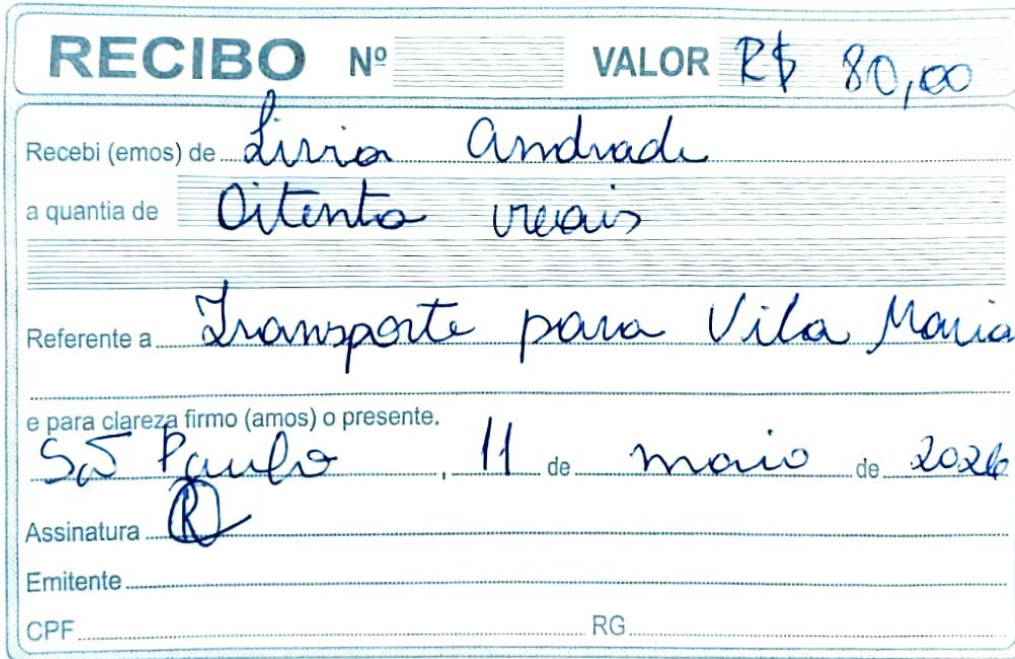 RECIBO Nº VALOR R$ 80,00
Recebi (emos) de Livia Andrade
a quantia de Oitenta reais
Referente a Transporte para Vila Maria
e para clareza firmo (amos) o presente.
São Paulo, 11 de maio de 2026
Assinatura R
Emitente
CPF RG